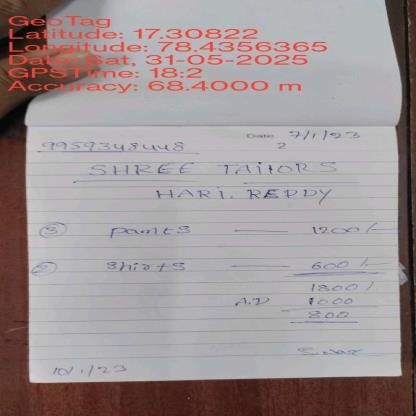 GeoTag
Latitude: 17.30822
Longitude: 78.4356365
Date: Sat, 31-05-2025
GPSTime: 18:2
Accuracy: 68.4000 m
Date 7/1/23
9959348448 2
SHREE TAILORS
HARI. REDDY
③ pants — 1200/-
② shirts — 600/-
1800/
A.D 1000
800
10/1/23